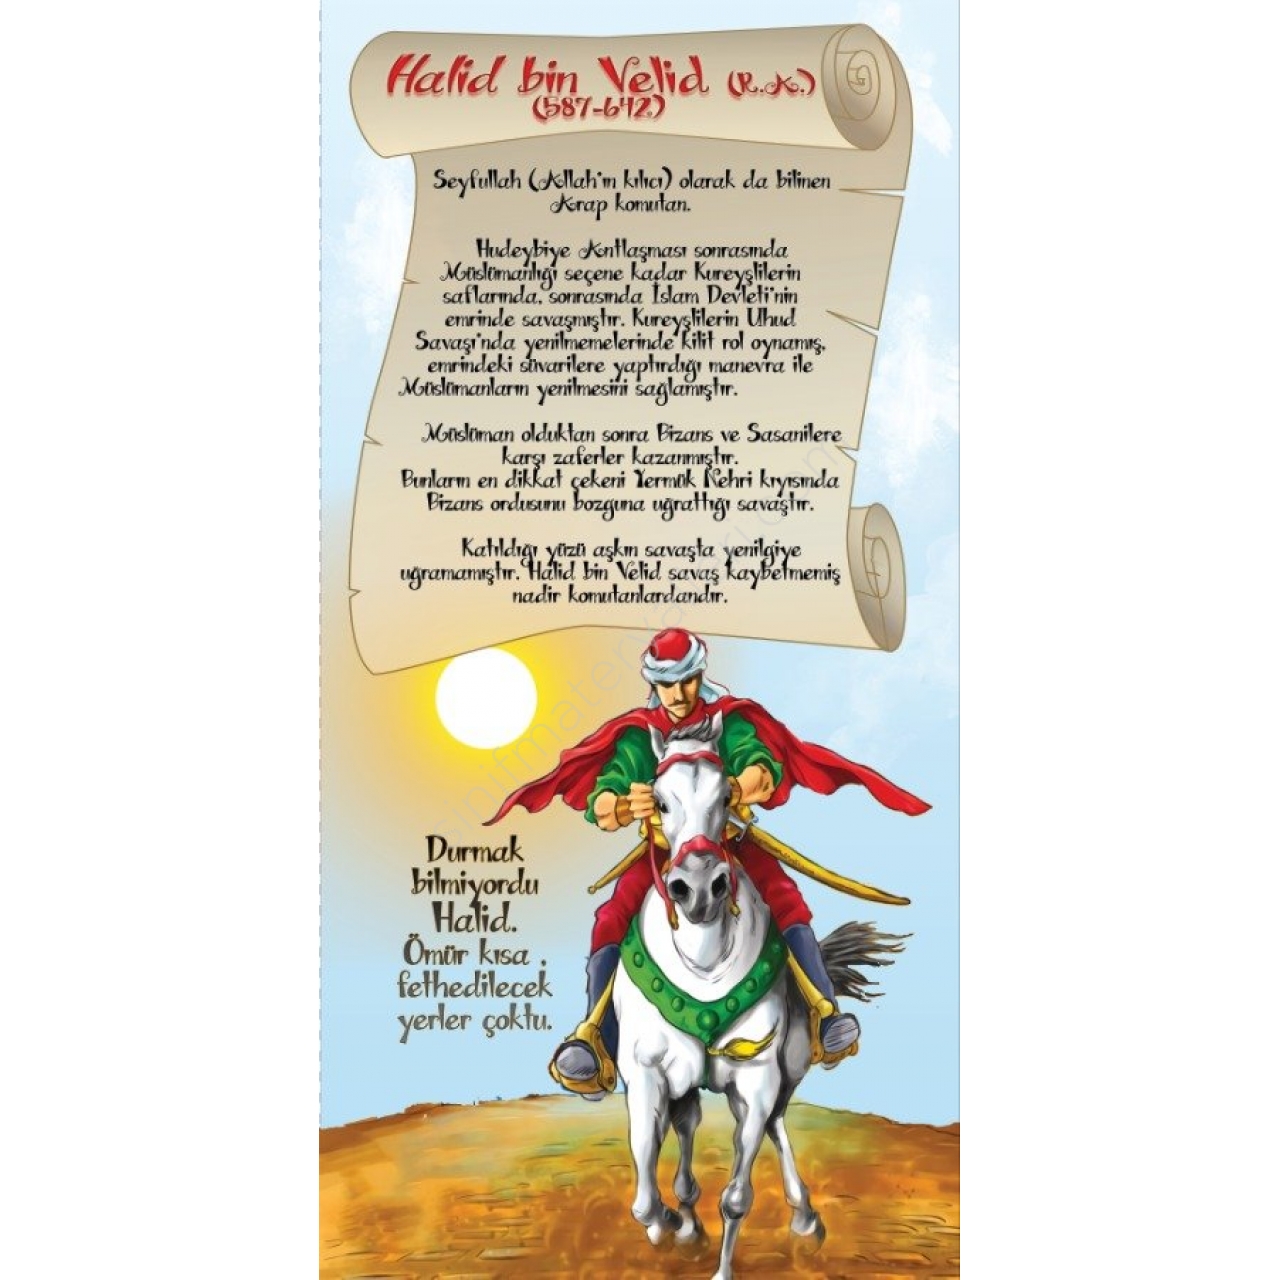 Halid bin Velid (R.A.)
(587-642)
Seyfullah (Allah'ın kılıcı) olarak da bilinen
Arap komutan.
Hudeybiye Antlaşması sonrasında
Müslümanlığı seçene kadar Kureyşlilerin
saflarında, sonrasında İslam Devleti'nin
emrinde savaşmıştır. Kureyşlilerin Uhud
Savaşı'nda yenilmemelerinde kilit rol oynamış,
emrindeki süvarilere yaptırdığı manevra ile
Müslümanların yenilmesini sağlamıştır.
Müslüman olduktan sonra Bizans ve Sasanilere
karşı zaferler kazanmıştır.
Bunların en dikkat çekeni Yermük Nehri kıyısında
Bizans ordusunu bozguna uğrattığı savaştır.
Katıldığı yüzü aşkın savaşta yenilgiye
uğramamıştır. Halid bin Velid savaş kaybetmemiş
nadir komutanlardandır.
Durmak
bilmiyordu
Halid.
Ömür kısa ,
fethedilecek
yerler çoktu.
sinifmateryalleri.com